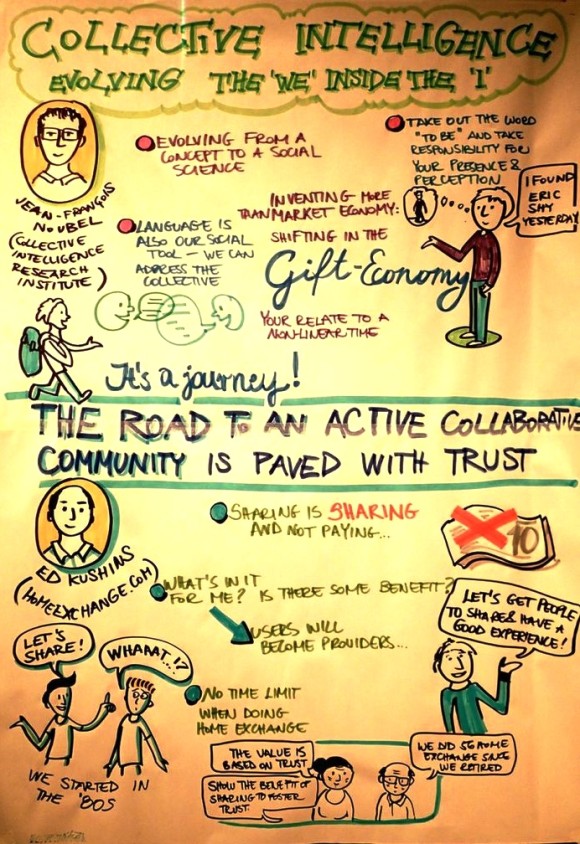 COLLECTIVE INTELLIGENCE
EVOLVING THE 'WE' INSIDE THE 'I'
JEAN-FRANÇOIS
NOUBEL
(COLLECTIVE
INTELLIGENCE
RESEARCH
INSTITUTE)
EVOLVING FROM A
CONCEPT TO A SOCIAL
SCIENCE
TAKE OUT THE WORD
"TO BE" AND TAKE
RESPONSIBILITY FOR
YOUR PRESENCE &
PERCEPTION
I FOUND
ERIC
SHY
YESTERDAY
LANGUAGE IS
ALSO OUR SOCIAL
TOOL – WE CAN
ADDRESS THE
COLLECTIVE
INVENTING MORE
THAN MARKET ECONOMY:
SHIFTING IN THE
Gift-Economy
YOUR RELATE TO A
NON-LINEAR TIME
It's a journey!
THE ROAD TO AN ACTIVE COLLABORATIVE
COMMUNITY IS PAVED WITH TRUST
ED KUSHINS
(HOMEEXCHANGE.COM)
SHARING IS SHARING
AND NOT PAYING...
10
WHAT'S IN IT
FOR ME? IS THERE SOME BENEFIT?
USERS WILL
BECOME PROVIDERS...
LET'S GET PEOPLE
TO SHARE & HAVE A
GOOD EXPERIENCE!
LET'S
SHARE!
WHAAAT..!?
WE STARTED IN
THE '80S
NO TIME LIMIT
WHEN DOING
HOME EXCHANGE
THE VALUE IS
BASED ON TRUST
SHOW THE BENEFIT OF
SHARING TO FOSTER
TRUST.
WE DID 56 HOME
EXCHANGE SINCE
WE RETIRED